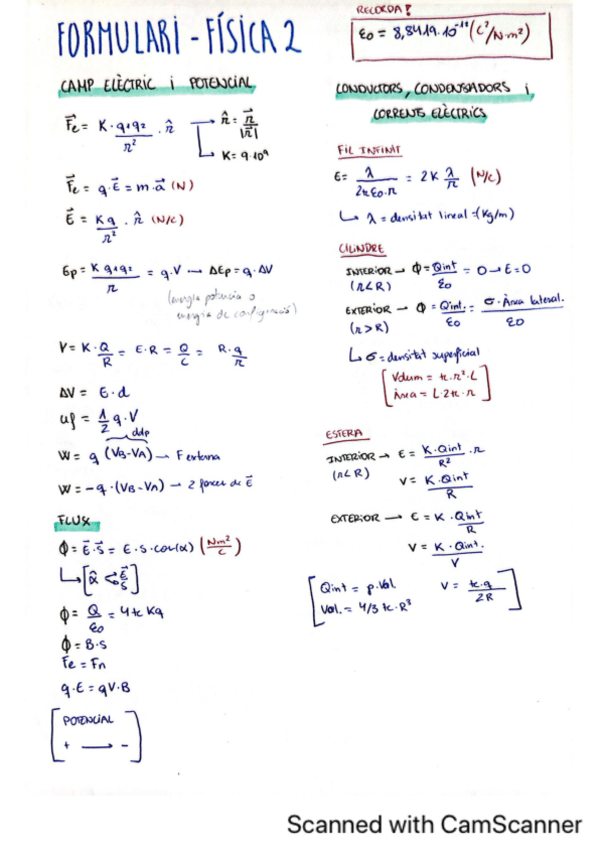 FORMULARI - FÍSICA 2
RECORDA!
ε0 = 8,8419·10⁻¹² (C²/N·m²)
CAMP ELÈCTRIC i POTENCIAL
F⃗e = K·q1q2/r² · r̂ → r̂ = r⃗/|r⃗|
↳ K = 9·10⁹
F⃗e = q·E⃗ = m·a⃗ (N)
E⃗ = Kq/r² · r̂ (N/C)
Ep = K q1q2/r = q·V → ΔEp = q·ΔV
(energia potencia o
energia de configuració)
V = K·Q/R = E·R = Q/C = R·q/r
ΔV = E·d
uf = 1/2 q·V
ddp
W = q (VB-VA) → F externa
W = -q·(VB-VA) → 2 forces de E⃗
FLUX
Φ = E⃗·S⃗ = E·S·cos(α) (Nm²/C)
↳ [α̂ < E⃗ S⃗]
Φ = Q/ε0 = 4πKq
Φ = B·S
Fe = Fn
q·E = qV·B
[POTENCIAL
+ → -]
CONDUCTORS, CONDENSADORS i
CORRENTS ELÈCTRICS
FIL INFINIT
E = λ/2πε0·r = 2K λ/r (N/C)
↳ λ = densitat lineal = (Kg/m)
CILINDRE
INTERIOR → Φ = Qint/ε0 = 0 → E = 0
(r<R)
EXTERIOR → Φ = Qint./ε0 = σ·Àrea lateral./ε0
(r>R)
↳ σ = densitat superficial
[Volum = π·r²·L
Àrea = L·2π·r]
ESFERA
INTERIOR → E = K·Qint/R² · r
(r<R)
V = K·Qint/R
EXTERIOR → E = K·Qint/R
V = K·Qint./V
[Qint = ρ·Vol V = π·q/2R
Vol. = 4/3 π·R³]
Scanned with CamScanner